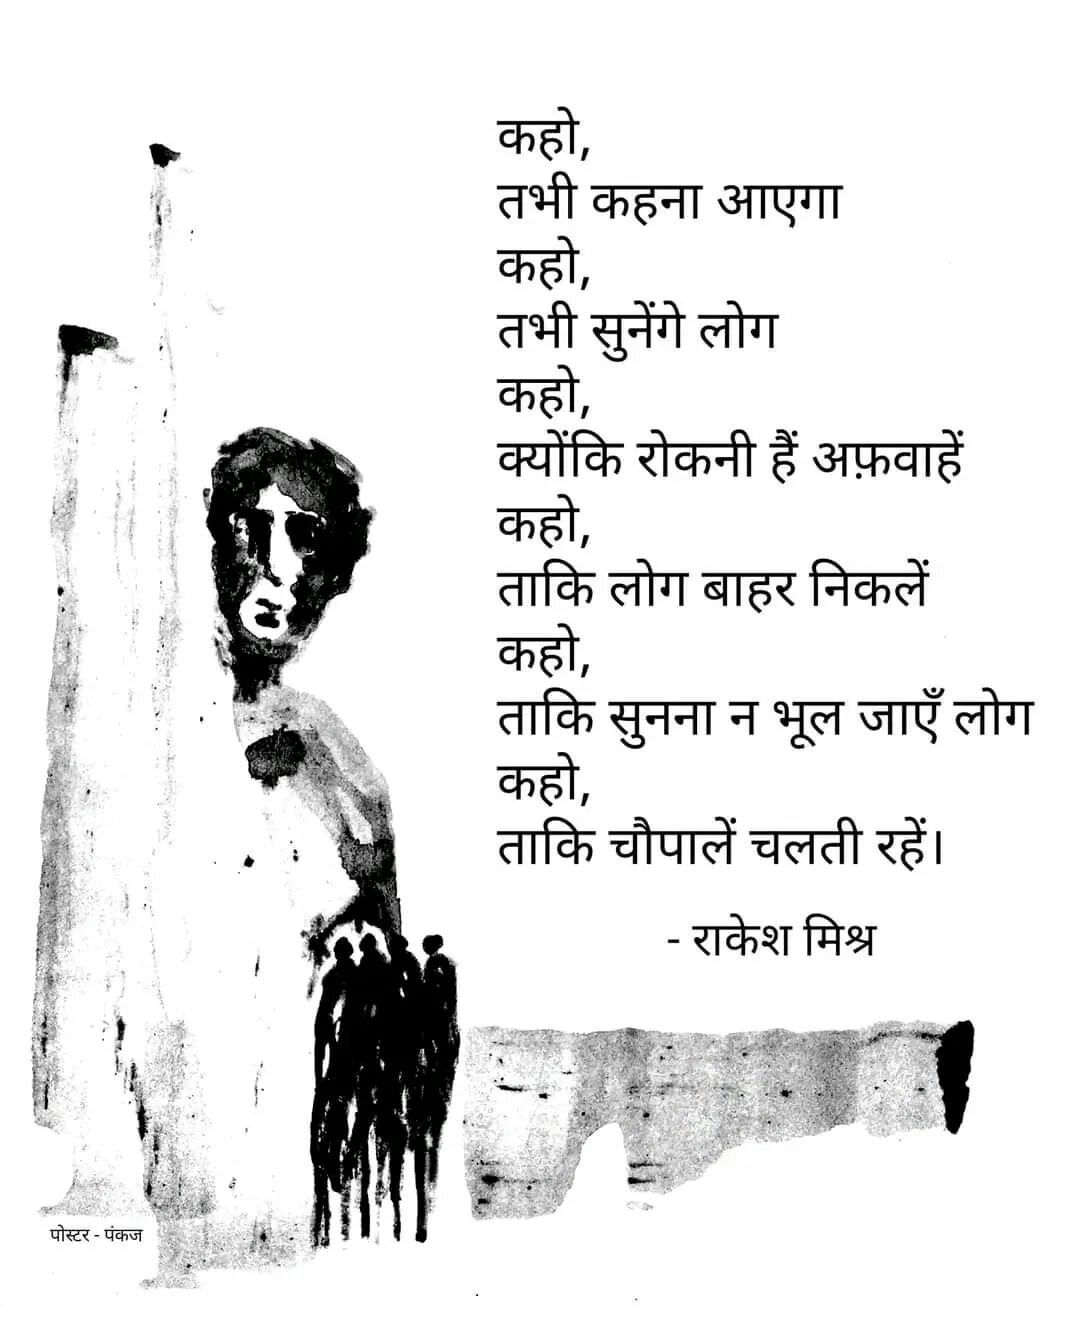 कहो,
तभी कहना आएगा
कहो,
तभी सुनेंगे लोग
कहो,
क्योंकि रोकनी हैं अफ़वाहें
कहो,
ताकि लोग बाहर निकलें
कहो,
ताकि सुनना न भूल जाएँ लोग
कहो,
ताकि चौपालें चलती रहें।
- राकेश मिश्र
पोस्टर - पंकज